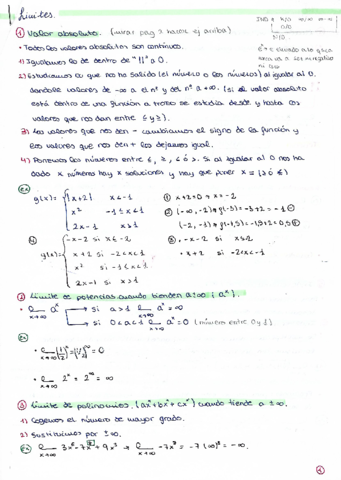 Límites.
① Valor absoluto. (mirar pag
• Todos los valores absolutos son continuos.
1) Igualamos lo de dentro de "||" a 0.
2) Estudiamos lo que nos ha salido (el número o los números) al igualar al 0,
dandole valores de -∞ a el nº y del nº a +∞. (si el valor absoluto
está dentro de una función a trozos se estudia desde y hasta los
valores que nos dan entre
3) Los valores que nos den - cambiamos el signo de la función y
los valores que nos den + los dejamos igual.
4) Ponemos los números entre ≤, ≥, < ó >. Si al igualar al 0 nos ha
dado x números hay x soluciones y hay que poner
Ex
g(x) = |x+2| x<-1
x² -1≤x≤1
2x-1 x>1
① x+2=0 → x=-2
② (-∞, -2) → g(-3) = -3+2 = -1 ⊖
(-2, -1) → g(-1,5) = -1,5+2 = 0,5 ⊕
g(x) = -x-2 si x≤-2
x+2 si -2<x<-1
x² si -1≤x≤1
2x-1 si x>1
③ • -x-2 si x≤-2
• x+2 si -2<x<-1
② Límite de potencias cuando tienden a ±∞ (aˣ).
• lim x→∞ aˣ → si a>1 lim x→∞ aˣ = ∞
→ si 0<a<1 lim x→∞ aˣ = 0 (número entre 0 y 1)
Ex
• lim x→∞ (1/2)ˣ = (1/2)^∞ = 0
• lim x→∞ 2ˣ = 2^∞ = ∞
③ Límite de polinomios, (axⁿ+bxⁿ+cxⁿ) cuando tiende a ±∞.
1) Cogemos el número de mayor grado.
2) Sustituimos por ±∞.